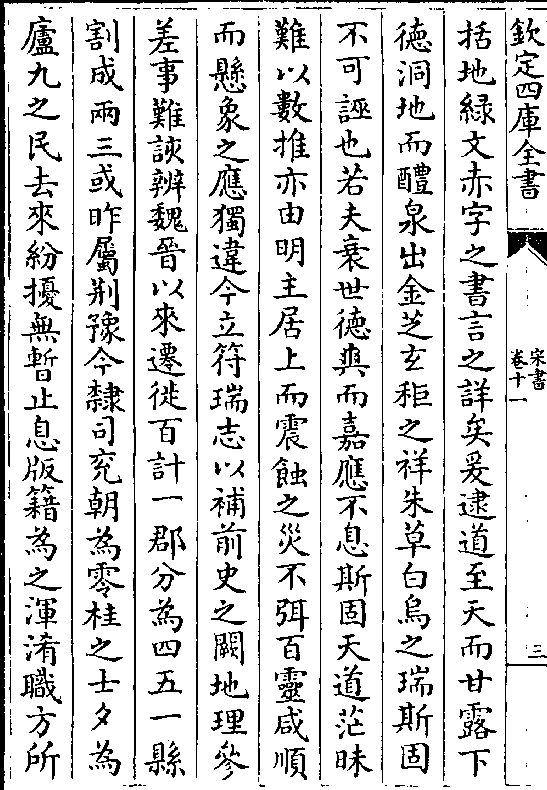 欽定四庫全書
宋書
卷十一
三
括地緑文赤字之書言之詳矣爰逮道至天而甘露下
徳洞地而醴泉出金芝玄秬之祥朱草白烏之瑞斯固
不可誣也若夫衰世徳爽而嘉應不息斯固天道茫昧
難以數推亦由明主居上而震蝕之災不弭百靈咸順
而懸象之應獨違今立符瑞志以補前史之闕地理參
差事難該辨魏晉以來遷徙百計一郡分為四五一縣
割成兩三或昨屬荆豫今隸司兖朝為零桂之士夕為
廬九之民去來紛擾無暫止息版籍為之渾淆職方所